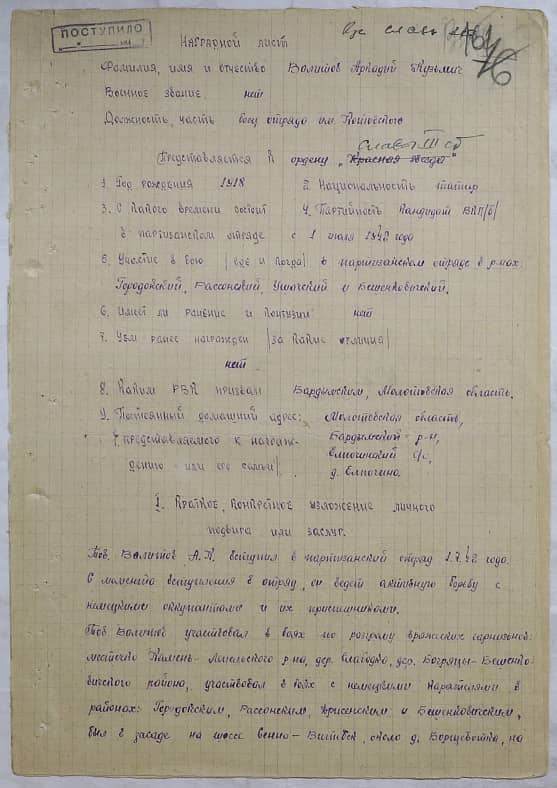 ПОСТУПИЛО
Наградной лист
Фамилия, имя и отчество Валитов Аркадий Кузьмич
Военное звание нет
Должность, часть боец отряда им. Котовского
Славы III ст
Представляется к ордену „Красная звезда"
1. Год рождения 1918 2. Национальность татар
3. С какого времени состоит 4. Партийность Кандидат ВКП/б/
в партизанском отряде с 1 июля 1942 года
5. Участие в бою /где и когда/ в партизанском отряде в р-нах:
Городокский, Россонский, Ушачский и Бешенковичский.
6. Имеет ли ранение и контузии нет
7. Чем ранее награжден /за какие отличия/
нет
8. Каким РВК призван Бардымским, Молотовская область.
9. Постоянный домашний адрес: Молотовская область,
/представляемого к награж- Бардымский р-н,
дению или его семьи/ Елпочинский с/с,
д. Елпочино.
I. Краткое, конкретное изложение личного
подвига или заслуг.
Тов. Валитов А.К. вступил в партизанский отряд 1.7.42 года.
С момента вступления в отряд, он ведет активную борьбу с
немецкими оккупантами и их приспешниками.
Тов. Валитов участвовал в боях по разгрому вражеских гарнизонов:
местечко Камень-Лепельского р-на, дер. Слободка, дер. Бочейково-Бешенко-
вичского района, участвовал в боях с немецкими карателями в
районах: Городокским, Россонским, Дриссенским и Бешенковичским,
был в засаде на шоссе Сенно-Витебск, около д. Борщевотка, на